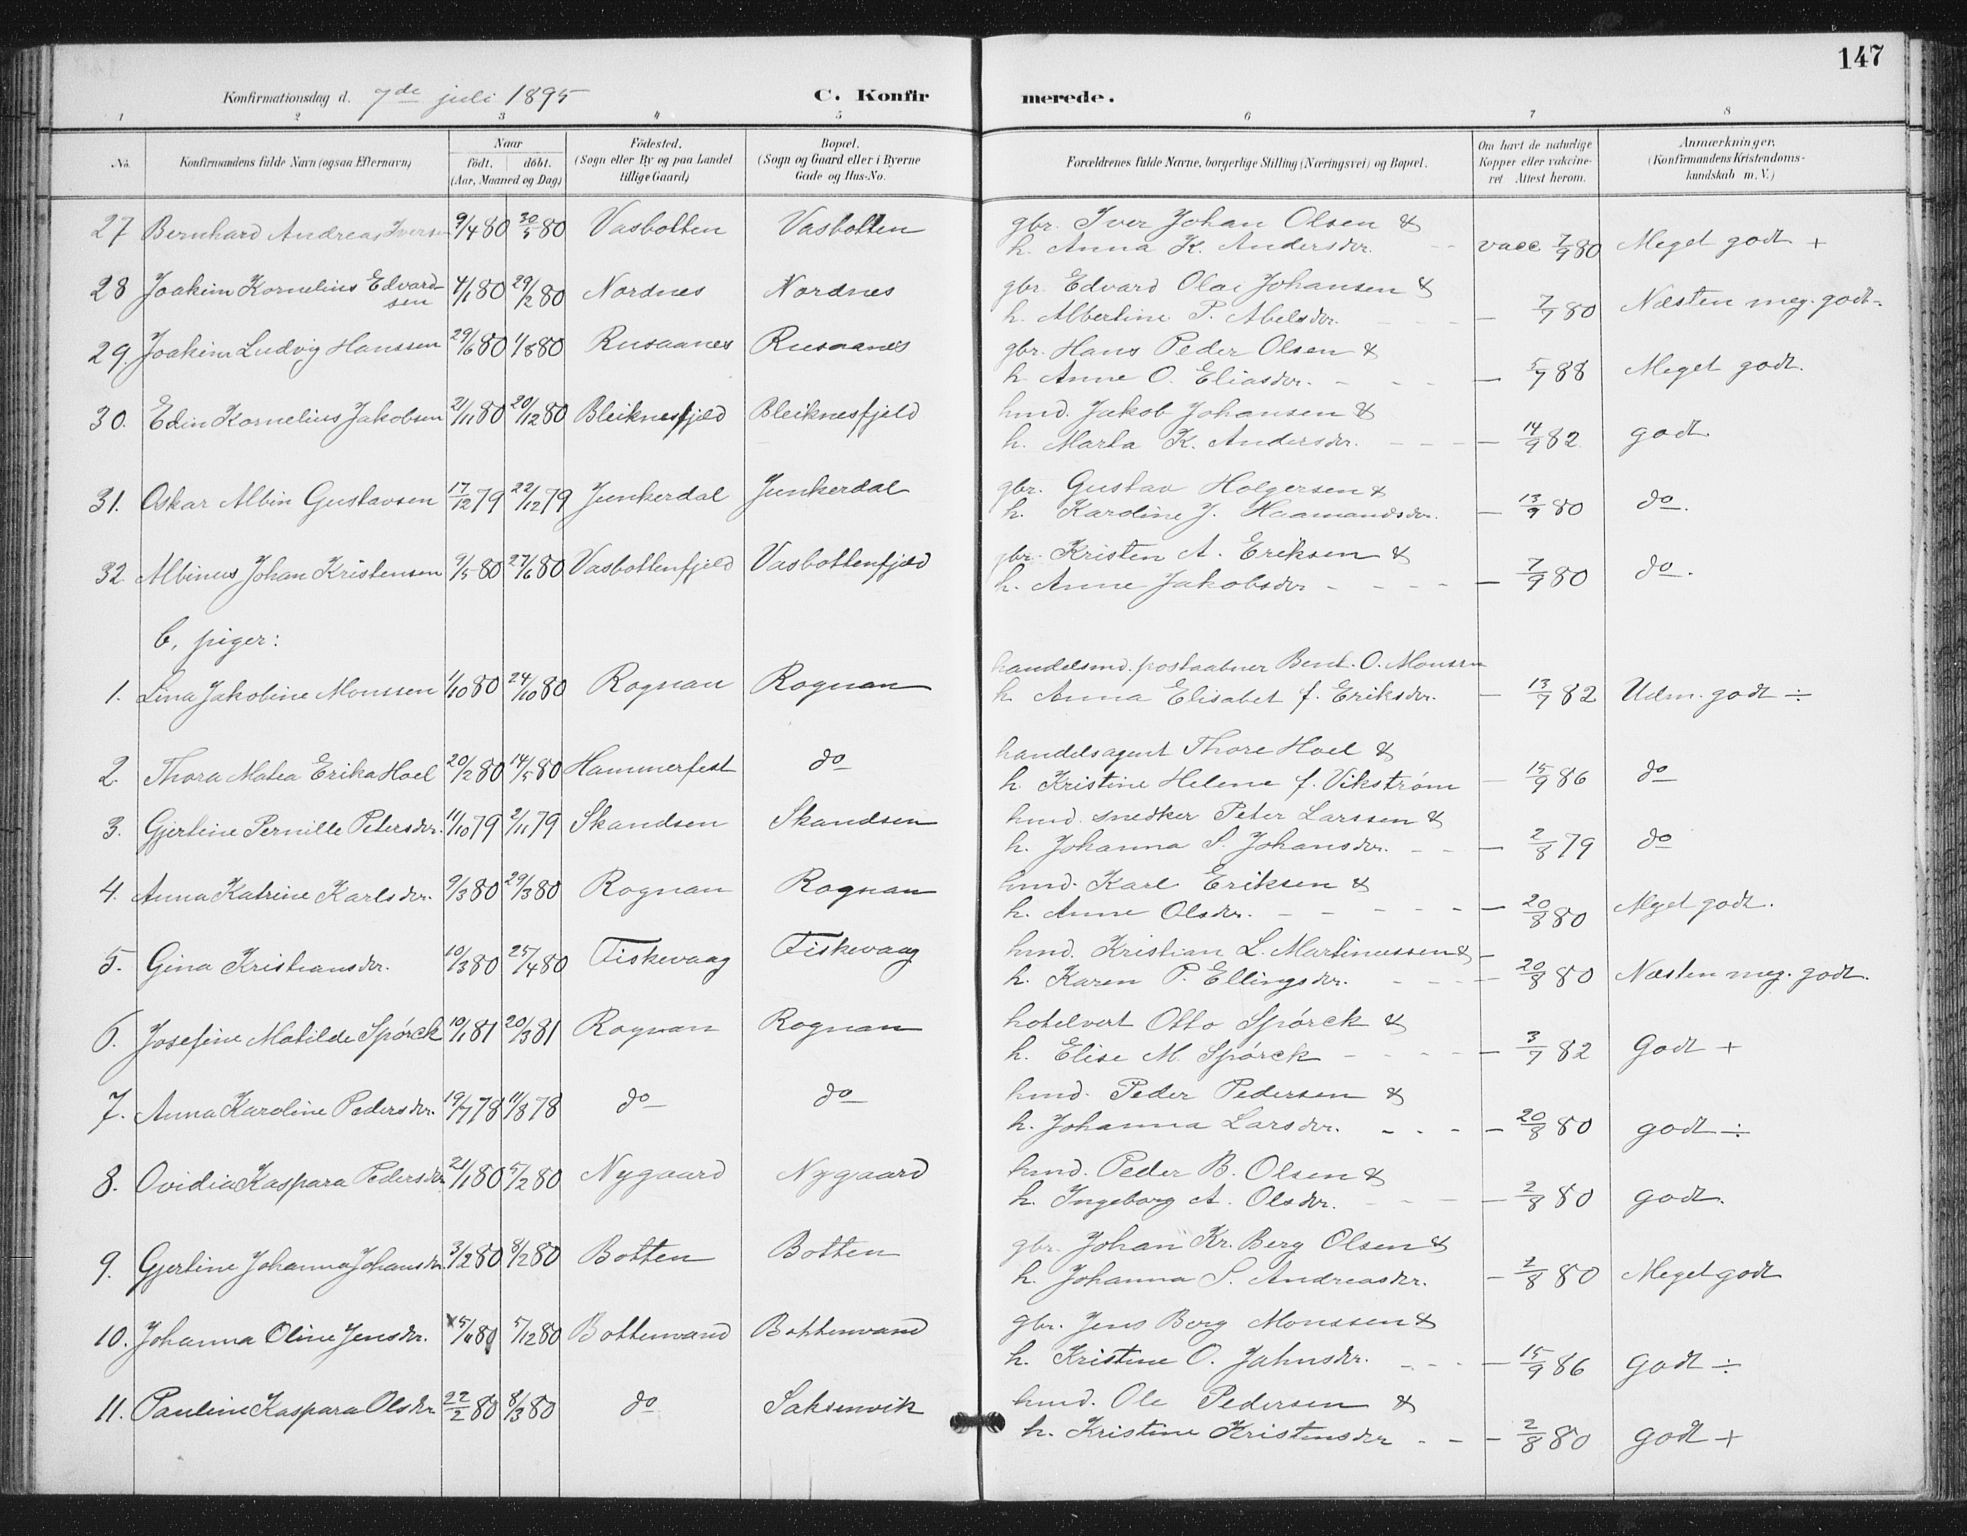 147
Konfirmationsdag d. 7de juli 1895 C. Konfirmerede.
1 2 3 4 5 6 7 8
No. Konfirmandens fulde Navn (ogsaa Efternavn) Naar födt. döbt. (Aar, Maaned og Dag) Födested. (Sogn eller By og paa Landet tillige Gaard) Bopæl. (Sogn og Gaard eller i Byerne Gade og Hus-No. Forældrenes fulde Navne, borgerlige Stilling (Næringsvei) og Bopæl. Om havt de naturlige Kopper eller vakcineret Attest herom. Anmærkninger. (Konfirmandens Kristendomskundskab m. V.)
27 Bernhard Andreas Iversen 9/4 80 30/5 80 Vasbotten Vasbotten gbr. Iver Johan Olsen &
h. Anna K. Andersdr. vacc 7/9 80 Meget godt +
28 Joakim Kornelius Edvardsen 4/1 80 29/2 80 Nordnes Nordnes gbr. Edvard Olai Johansen &
h. Albertine P. Abelsdr. - 7/9 80 Næsten meg. godt -
29. Joakim Ludvig Hanssen 29/6 80 1/8 80 Rusaanes Rusaanes gbr. Hans Peder Olsen &
h. Anne O. Eliasdr. - 5/7 88 Meget godt.
30. Edin Kornelius Jakobsen 21/11 80 20/12 80 Bleiknesfjeld Bleiknesfjeld hmd. Jakob Johansen &
h. Marta K. Andersdr. - 14/9 82 godt
31. Oskar Albin Gustavsen 17/12 79 22/12 79 Junkerdal Junkerdal gbr. Gustav Holgersen &
h. Karoline J. Haamandsdr. - 13/9 80 do.
32 Albinus Johan Kristensen 9/5 80 27/6 80 Vasbottenfjeld Vasbottenfjeld gbr. Kristen A. Eriksen &
h. Anne Jakobsdr - 7/9 80 do.
b, piger:
1. Lina Jakobine Monssen 1/10 80 24/10 80 Rognan Rognan handelsmd. postaabner Bent. O. Monssen
h Anna Elisabet f. Eriksdr. - 13/9 82 Udm. godt ÷
2. Thora Matea Erika Hoel 20/2 80 14/5 80 Hammerfest do handelsagent Thore Hoel &
h. Kristine Helene f. Vikstrøm - 15/9 86 do
3. Gjertine Pernille Petersdr. 11/10 79 2/11 79 Skandsen Skandsen hmd. snedker Peter Larssen &
h. Johanna S. Johansdr. - 2/8 79 do
4. Anna Katrine Karlsdr. 9/3 80 29/3 80 Rognan Rognan hmd. Karl Eriksen &
h. Anne Olsdr. - 20/8 80 Meget godt.
5. Gina Kristiansdr. 10/3 80 25/4 80 Fiskevaag Fiskevaag hmd. Kristian L. Martinussen &
h. Karen P. Ellingsdr. - 20/8 80 Næsten meg. godt.
6. Josefine Matilde Spørck 10/1 81 20/3 81 Rognan Rognan hotelvert Otto Spørck &
h. Elise M. Spørck - 3/7 82 Godt +
7. Anna Karoline Pedersdr. 19/7 78 11/8 78 do do hmd. Peder Pedersen &
h. Johanna Larsdr. - 20/8 80 godt ÷
8. Ovidia Kaspara Pedersdr 21/1 80 5/2 80 Nygaard Nygaard hmd. Peder B. Olsen &
h. Ingeborg A. Olsdr. - 2/8 80 godt.
9. Gjertine Johanna Johansdr 3/2 80 8/2 80 Botten Botten gbr. Johan Kr. Berg Olsen &
h. Johanna S. Andreasdr. - 2/8 80 Meget godt
10. Johanna Oline Jensdr. 5/11 80 5/12 80 Bottenvand Bottenvand gbr. Jens Berg Monssen &
h. Kristine O. Jahnsdr. - 15/9 86 Godt ÷
11. Pauline Kaspara Olsdr 22/2 80 8/3 80 do Saksenvik hmd. Ole Pedersen &
h. Kristine Kristensdr - 2/8 80 godt +